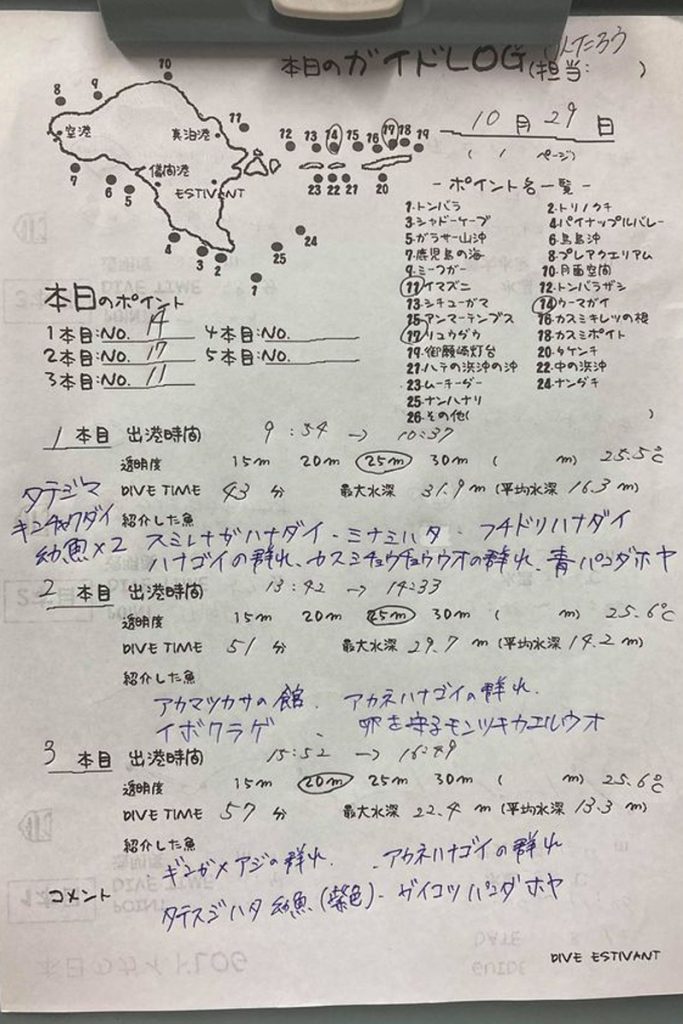 本日のガイドLOG(担当: んたろう )
10月29日
( 1 ページ)
10
9
8
空港
真泊港
11
12 13 14 15 16 17 18 19
儀間港
ESTIVANT
7
6
5
23 22 21
20
4
3
2
24
25
1
-ポイント名一覧-
1.トンバラ 2.トリノクチ
3.シャドーケーブ 4.パイナップルバレー
5.ガラサー山沖 6.鳥島沖
7.鹿児島の海 8.プレアクエリアム
9.ミーフガー 10.月面空間
11.イマズニ 12.トンバラザシ
13.シチューガマ 14.ウーマガイ
15.アンマーテンプス 16.カスミキレツの根
17.リュウダウ 18.カスミポイト
19.御願崎灯台 20.タケンチ
21.ハテの浜沖の沖 22.中の浜沖
23.ムーチーダー 24.ナンダキ
25.ナンハナリ
26.その他( )
本日のポイント
1本目:NO. 14 4本目:NO.
2本目:NO. 17 5本目:NO.
3本目:NO. 11
1 本目 出港時間 9:54 → 10:37
透明度 15m 20m 25m 30m ( m) 25.5℃
DIVE TIME 43 分 最大水深 31.9 m (平均水深 16.3 m)
タテジマ
キンチャクダイ
幼魚×2
紹介した魚
スミレナガハナダイ・ミナミハタ・フチドリハナダイ
ハナゴイの群れ、カスミチョウチョウウオの群れ、青パンダホヤ
2 本目 出港時間 13:42 → 14:33
透明度 15m 20m 25m 30m ( m) 25.6℃
DIVE TIME 51 分 最大水深 29.7 m (平均水深 14.2 m)
紹介した魚
アカマツカサの館、アカネハナゴイの群れ、
イボクラゲ、卵を守るモンツキカエルウオ
3 本目 出港時間 15:52 → 16:49
透明度 15m 20m 25m 30m ( m) 25.6℃
DIVE TIME 57 分 最大水深 22.4 m (平均水深 13.3 m)
紹介した魚
ギンガメアジの群れ、アカネハナゴイの群れ
コメント
タテスジハタ幼魚(紫色)・ガイコツパンダホヤ
DIVE ESTIVANT